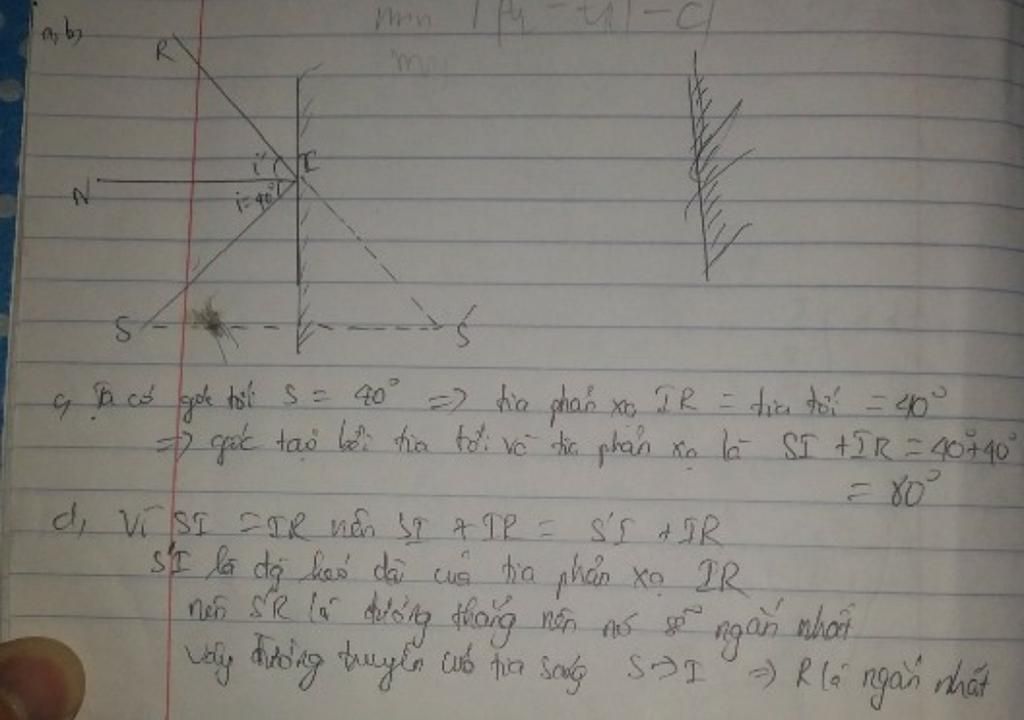 a, b,
min
R
i'
I
N
i=40°
S
S'
c, Ta có góc tới S = 40° => tia phản xạ IR = tia tới = 40°
=> góc tạo bởi tia tới và tia phản xạ là SI + IR = 40°+40°
= 80°
d, Vì SI = IR nên SI + IR = S'I + IR
S'I là độ kéo dài của tia phản xạ IR
nên S'R là đường thẳng nên nó sẽ ngắn nhất
vậy đường truyền của tia sáng S->I => R là ngắn nhất